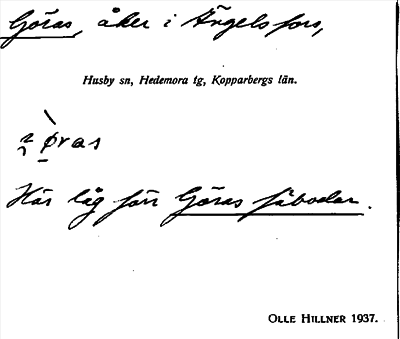 Göras, åker i Ängelsfors,
Husby sn, Hedemora tg, Kopparbergs län.
Här låg förr Göras fäbodar.
OLLE HILLNER 1937.